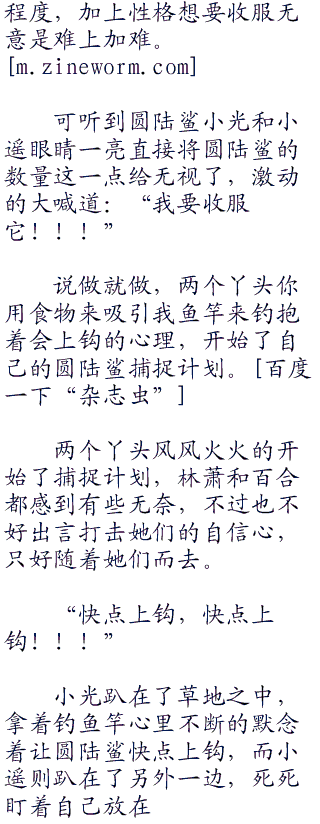 程度，加上性格想要收服无
意是难上加难。
[m.zineworm.com]
可听到圆陆鲨小光和小
遥眼睛一亮直接将圆陆鲨的
数量这一点给无视了，激动
的大喊道：“我要收服
它！！！”
说做就做，两个丫头你
用食物来吸引我鱼竿来钓抱
着会上钩的心理，开始了自
己的圆陆鲨捕捉计划。[百度
一下“杂志虫”]
两个丫头风风火火的开
始了捕捉计划，林萧和百合
都感到有些无奈，不过也不
好出言打击她们的自信心，
只好随着她们而去。
“快点上钩，快点上
钩！！！”
小光趴在了草地之中，
拿着钓鱼竿心里不断的默念
着让圆陆鲨快点上钩，而小
遥则趴在了另外一边，死死
盯着自己放在